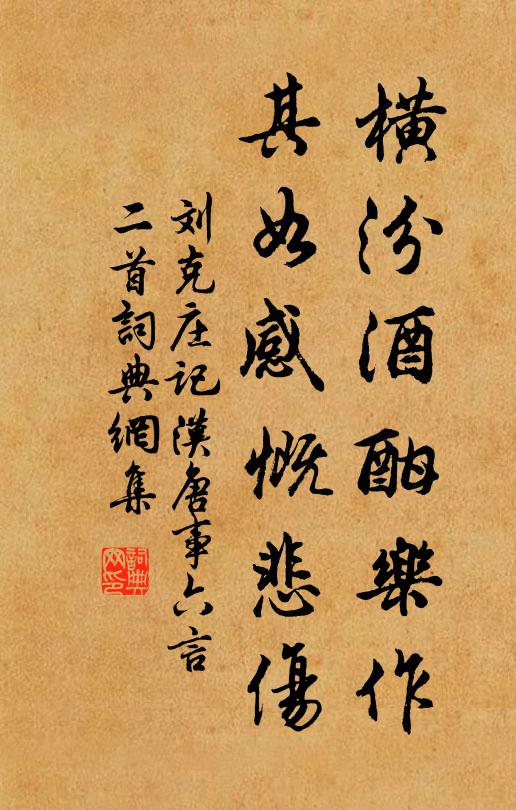 橫汾酒酣樂作
其如感慨悲傷
刘克庄記漢唐事六言
二首詞典網集
詞典網印